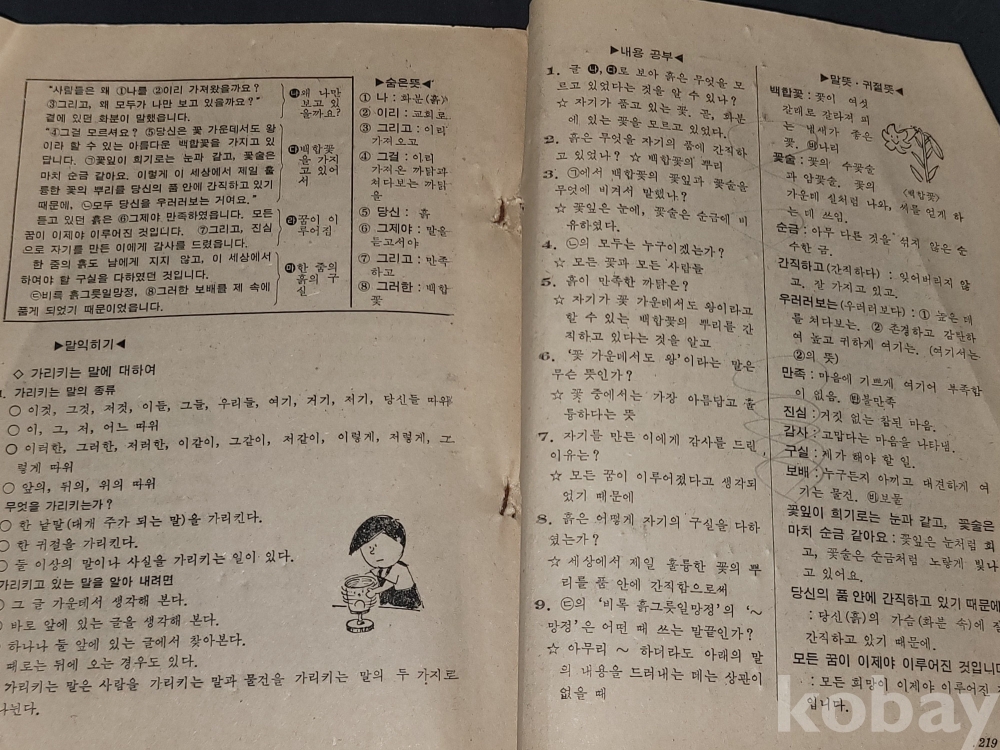 "사람들은 왜 ①나를 ②이리 가져왔을까요?
③그리고, 왜 모두가 나만 보고 있을까요?"
곁에 있던 화분이 말했읍니다.
"④그걸 모르셔요? ⑤당신은 꽃 가운데서도 왕
이라 할 수 있는 아름다운 백합꽃을 가지고 있
답니다. ㉠꽃잎이 희기로는 눈과 같고, 꽃술은
마치 순금 같아요. 이렇게 이 세상에서 제일 훌
륭한 꽃의 뿌리를 당신의 품 안에 간직하고 있기
때문에, ㉡모두 당신을 우러러보는 거여요."
듣고 있던 흙은 ⑥그제야 만족하였읍니다. 모든
꿈이 이제야 이루어진 것입니다. ⑦그리고, 진심
으로 자기를 만든 이에게 감사를 드렸읍니다.
한 줌의 흙도 남에게 지지 않고, 이 세상에서
하며야 할 구실을 다하였던 것입니다.
㉢비록 흙그릇일망정, ⑧그러한 보배를 제 속에
품게 되었기 때문이었읍니다.
㉯왜 나만
보고 있
을까요?
㉰백합꽃
을 가지
고 있어
서
㉱꿈이 이
루어짐
㉲한 줌의
흙의 구
실
▶숨은뜻◀
① 나 : 화분(흙)
② 이리 : 교회로
③ 그리고 : 이리
가져오고
④ 그걸 : 이리
가져온 까닭과
쳐다보는 까닭
을
⑤ 당신 : 흙
⑥ 그제야 : 말을
듣고서야
⑦ 그리고 : 만족
하고
⑧ 그러한 : 백합
꽃
▶말익히기◀
◇ 가리키는 말에 대하여
1. 가리키는 말의 종류
○ 이것, 그것, 저것, 이들, 그들, 우리들, 여기, 거기, 저기, 당신들 따위
○ 이, 그, 저, 어느 따위
○ 이러한, 그러한, 저러한, 이같이, 그같이, 저같이, 이렇게, 저렇게, 그
렇게 따위
○ 앞의, 뒤의, 위의 따위
무엇을 가리키는가?
○ 한 낱말(대개 주가 되는 말)을 가리킨다.
○ 한 귀절을 가리킨다.
○ 둘 이상의 말이나 사실을 가리키는 일이 있다.
가리키고 있는 말을 알아 내려면
○ 그 글 가운데서 생각해 본다.
○ 바로 앞에 있는 글을 생각해 본다.
하나나 둘 앞에 있는 글에서 찾아본다.
때로는 뒤에 오는 경우도 있다.
가리키는 말은 사람을 가리키는 말과 물건을 가리키는 말의 두 가지로
나뉜다.
▶내용 공부◀
1. 글 ㉯, ㉰로 보아 흙은 무엇을 모
르고 있었다는 것을 알 수 있나?
☆ 자기가 품고 있는 꽃. 곧, 화분
에 있는 꽃을 모르고 있었다.
2. 흙은 무엇을 자기의 품에 간직하
고 있었나? ☆ 백합꽃의 뿌리
3. ㉠에서 백합꽃의 꽃잎과 꽃술을
무엇에 비겨서 말했나?
☆ 꽃잎은 눈에, 꽃술은 순금에 비
유하였다.
4. ㉡의 모두는 누구이겠는가?
☆ 모든 꽃과 모든 사람들
5. 흙이 만족한 까닭은?
☆ 자기가 꽃 가운데서도 왕이라고
할 수 있는 백합꽃의 뿌리를 간
직하고 있다는 것을 알고
6. '꽃 가운데서도 왕'이라는 말은
무슨 뜻인가?
☆ 꽃 중에서는 가장 아름답고 훌
륭하다는 뜻
7. 자기를 만든 이에게 감사를 드린
이유는?
☆ 모든 꿈이 이루어졌다고 생각되
었기 때문에
8. 흙은 어떻게 자기의 구실을 다하
였는가?
☆ 세상에서 제일 훌륭한 꽃의 뿌
리를 품 안에 간직함으로써
9. ㉢의 '비록 흙그릇일망정'의 '～
망정'은 어떤 때 쓰는 말끝인가?
☆ 아무리 ～ 하더라도 아래의 말
의 내용을 드러내는 데는 상관이
없을 때
▶말뜻·귀절뜻◀
백합꽃 : 꽃이 여섯
갈래로 갈라져 피
는 냄새가 좋은
꽃. ㉥나리
꽃술 : 꽃의 수꽃술
과 암꽃술. 꽃의
가운데 실처럼 나와, 씨를 얻게 하
는 데 쓰임.
〈백합꽃〉
순금 : 아무 다른 것을 섞지 않은 순
수한 금.
간직하고(간직하다) : 잊어버리지 않
고. 잘 가지고 있고.
우러러보는(우러러보다) : ① 높은 데
를 쳐다보는. ② 존경하고 감탄하
여 높고 귀하게 여기는. (여기서는
②의 뜻)
만족 : 마음에 기쁘게 여기어 부족함
이 없음. ㉫불만족
진심 : 거짓 없는 참된 마음.
감사 : 고맙다는 마음을 나타냄.
구실 : 제가 해야 할 일.
보배 : 누구든지 아끼고 대견하게 여
기는 물건. ㉥보물
꽃잎이 희기로는 눈과 같고, 꽃술은
마치 순금 같아요 : 꽃잎은 눈처럼 희
고, 꽃술은 순금처럼 노랗게 빛나
고 있어요.
당신의 품 안에 간직하고 있기 때문에
: 당신(흙)의 가슴(화분 속)에 잘
간직하고 있기 때문에.
모든 꿈이 이제야 이루어진 것입니다
: 모든 희망이 이제야 이루어진
입니다.
219
kobay